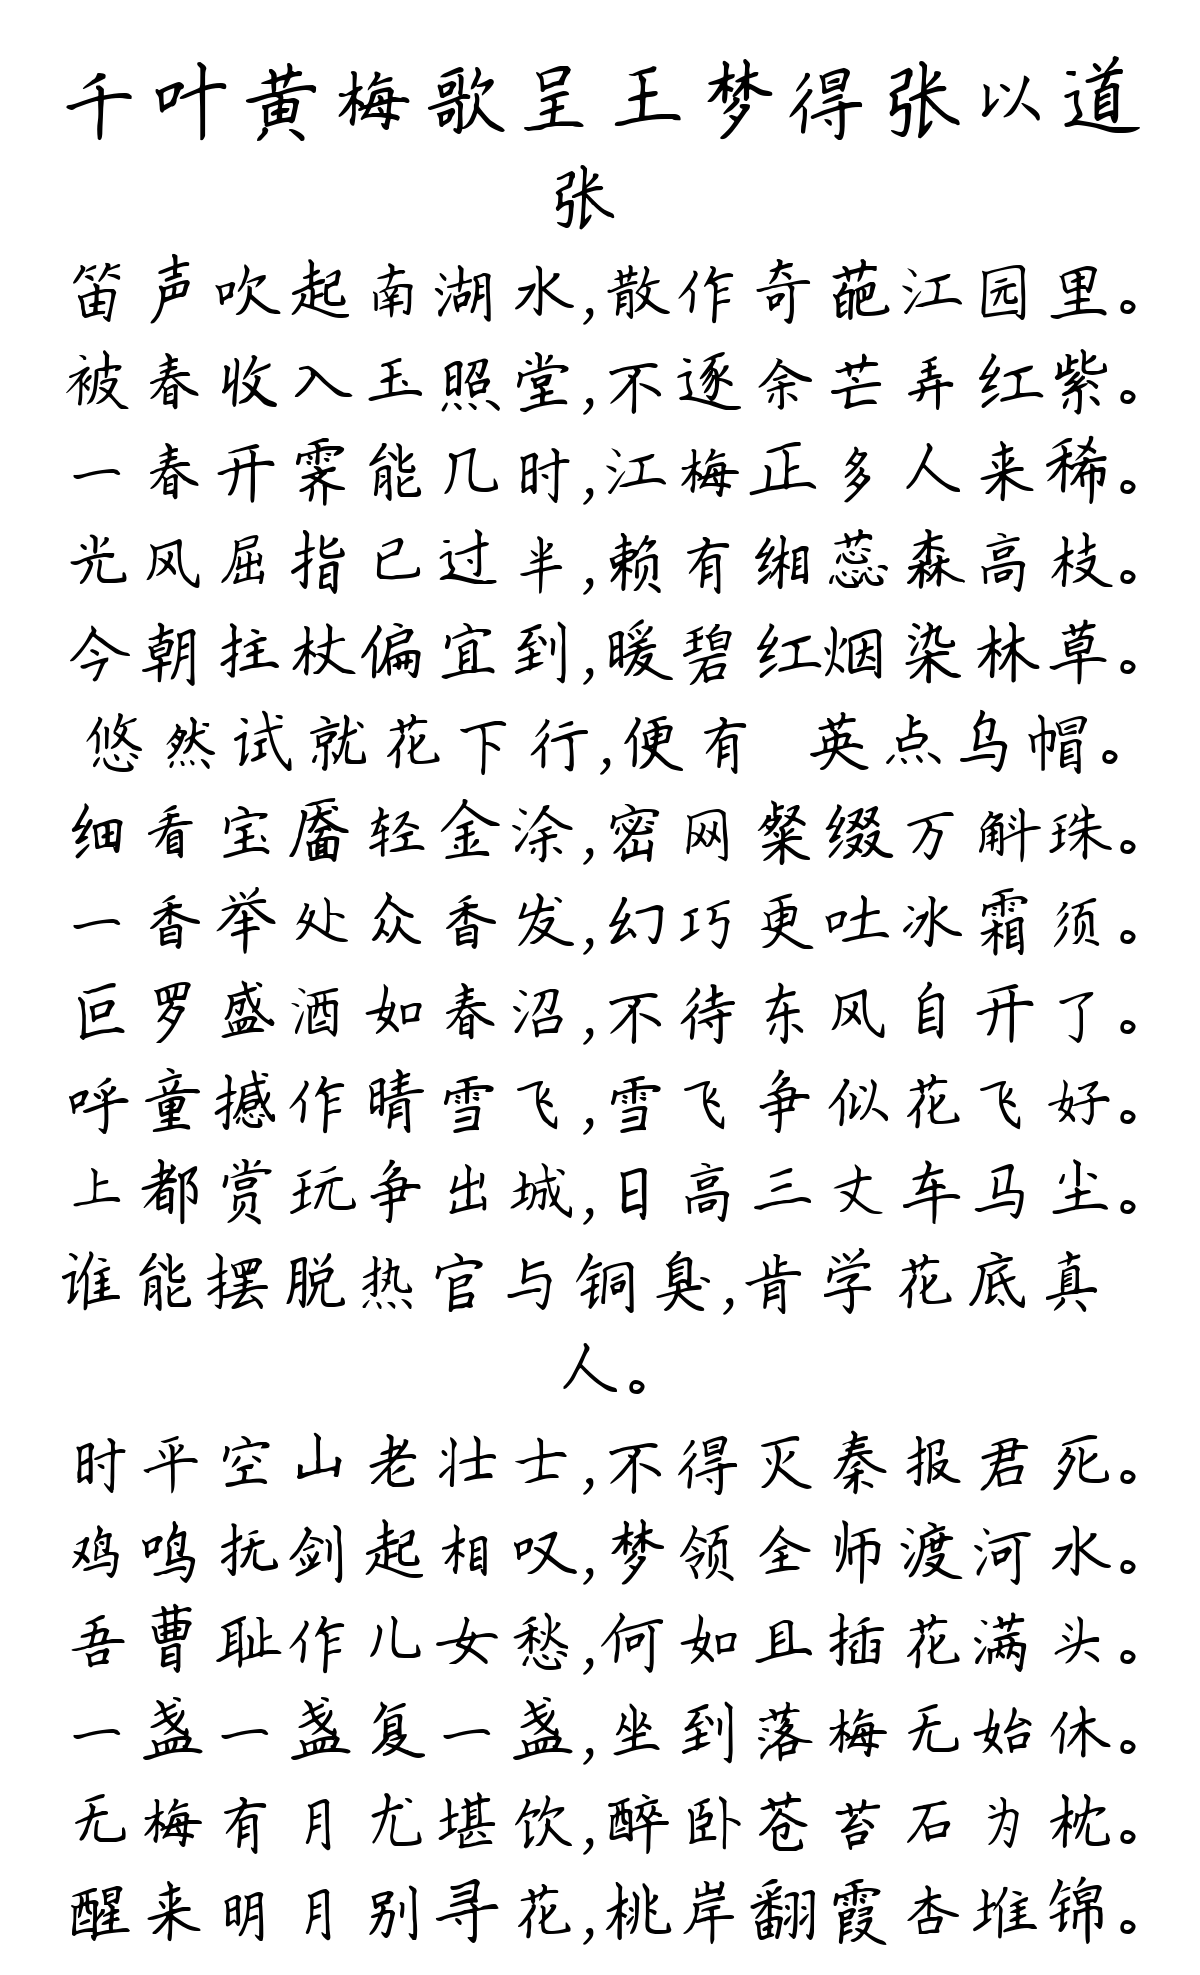 千叶黄梅歌呈王梦得张以道
张
笛声吹起南湖水,散作奇葩江园里。
被春收入玉照堂,不逐余芒弄红紫。
一春开霁能几时,江梅正多人来稀。
光风屈指已过半,赖有缃蕊森高枝。
今朝拄杖偏宜到,暖碧红烟染林草。
悠然试就花下行,便有 英点乌帽。
细看宝靥轻金涂,密网粲缀万斛珠。
一香举处众香发,幻巧更吐冰霜须。
叵罗盛酒如春沼,不待东风自开了。
呼童撼作晴雪飞,雪飞争似花飞好。
上都赏玩争出城,日高三丈车马尘。
谁能摆脱热官与铜臭,肯学花底真
人。
时平空山老壮士,不得灭秦报君死。
鸡鸣抚剑起相叹,梦领全师渡河水。
吾曹耻作儿女愁,何如且插花满头。
一盏一盏复一盏,坐到落梅无始休。
无梅有月尤堪饮,醉卧苍苔石为枕。
醒来明月别寻花,桃岸翻霞杏堆锦。